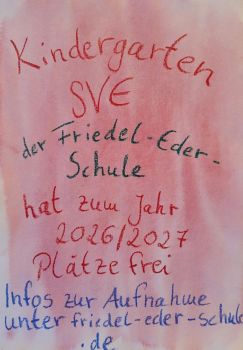 Kindergarten
SVE
der Friedel-Eder-
Schule
hat zum Jahr
2026/2027
Plätze frei
Infos zur Aufnahme
unter friedel-eder-schule
.de